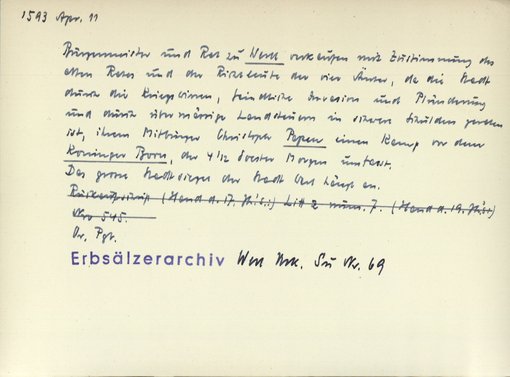 1593 Apr. 11
Bürgermeister und Rat zu Werl verkaufen mit Zustimmung des
alten Rates und der Richtleute der vier Ämter, da die Stadt
durch die Kriegswirren, feindliche Invasion und Plünderung
und durch übermässige Landsteuern in schwere Schulden geraten
ist, ihrem Mitbürger Christoph Papen einen Kamp vor dem
Born, der 4 1/2 Morgen umfasst.
Das grosse Stadtsiegel der Stadt Werl hängt an.
(Hand d. 17. Jh.s:) Litt Z num. 7. (Hand d. 19. Jh.s:)
Nro 545.
Or. Pgt.
Erbsälzerarchiv Werl Urk. Nr. 69